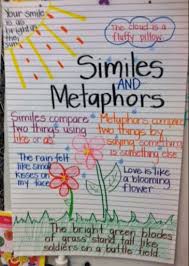 Your smile
is as
bright as
the
sun
The cloud is a
fluffy pillow.
Similes
AND
Metaphors
Similes compare
two things using
like or as
Metaphors compare
two things by
saying something
is something else
The rain felt
like small
kisses on
my face
Love is like
a blooming
flower
The bright green blades
of grass stand tall like
soldiers on a battle field